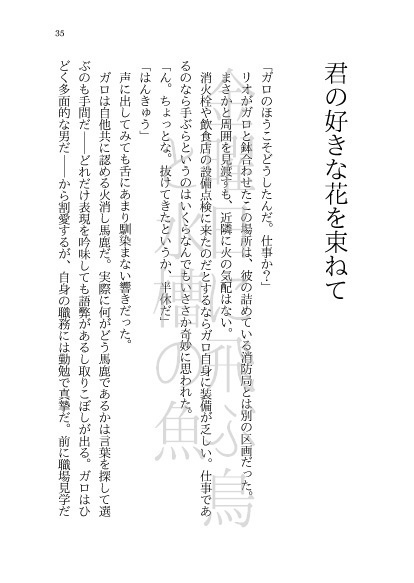 君の好きな花を束ねて
「ガロのほうこそどうしたんだ。仕事か？」
リオがガロと鉢合わせたこの場所は、彼の詰めている消防局とは別の区画だった。
まさかと周囲を見渡すも、近隣に火の気配はない。
消火栓や飲食店の設備点検に来たのだとするならガロ自身に装備が乏しい。仕事であ
るのなら手ぶらというのはいくらなんでもいささか奇妙に思われた。
「ん。ちょっとな。抜けてきたというか、半休だ」
「はんきゅう」
声に出してみても舌にあまり馴染まない響きだった。
ガロは自他共に認める火消し馬鹿だ。実際に何がどう馬鹿であるかは言葉を探して選
ぶのも手間だ――どれだけ表現を吟味しても語弊があるし取りこぼしが出る。ガロはひ
どく多面的な男だ――から割愛するが、自身の職務には勤勉で真摯だ。前に職場見学だ
35
飛ぶ鳥
の魚